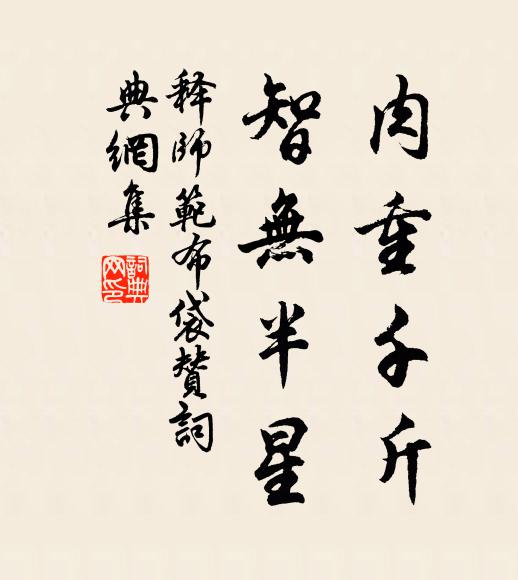 肉重千斤
智無半星
释師範布袋贊詞
典網集
詞典网印